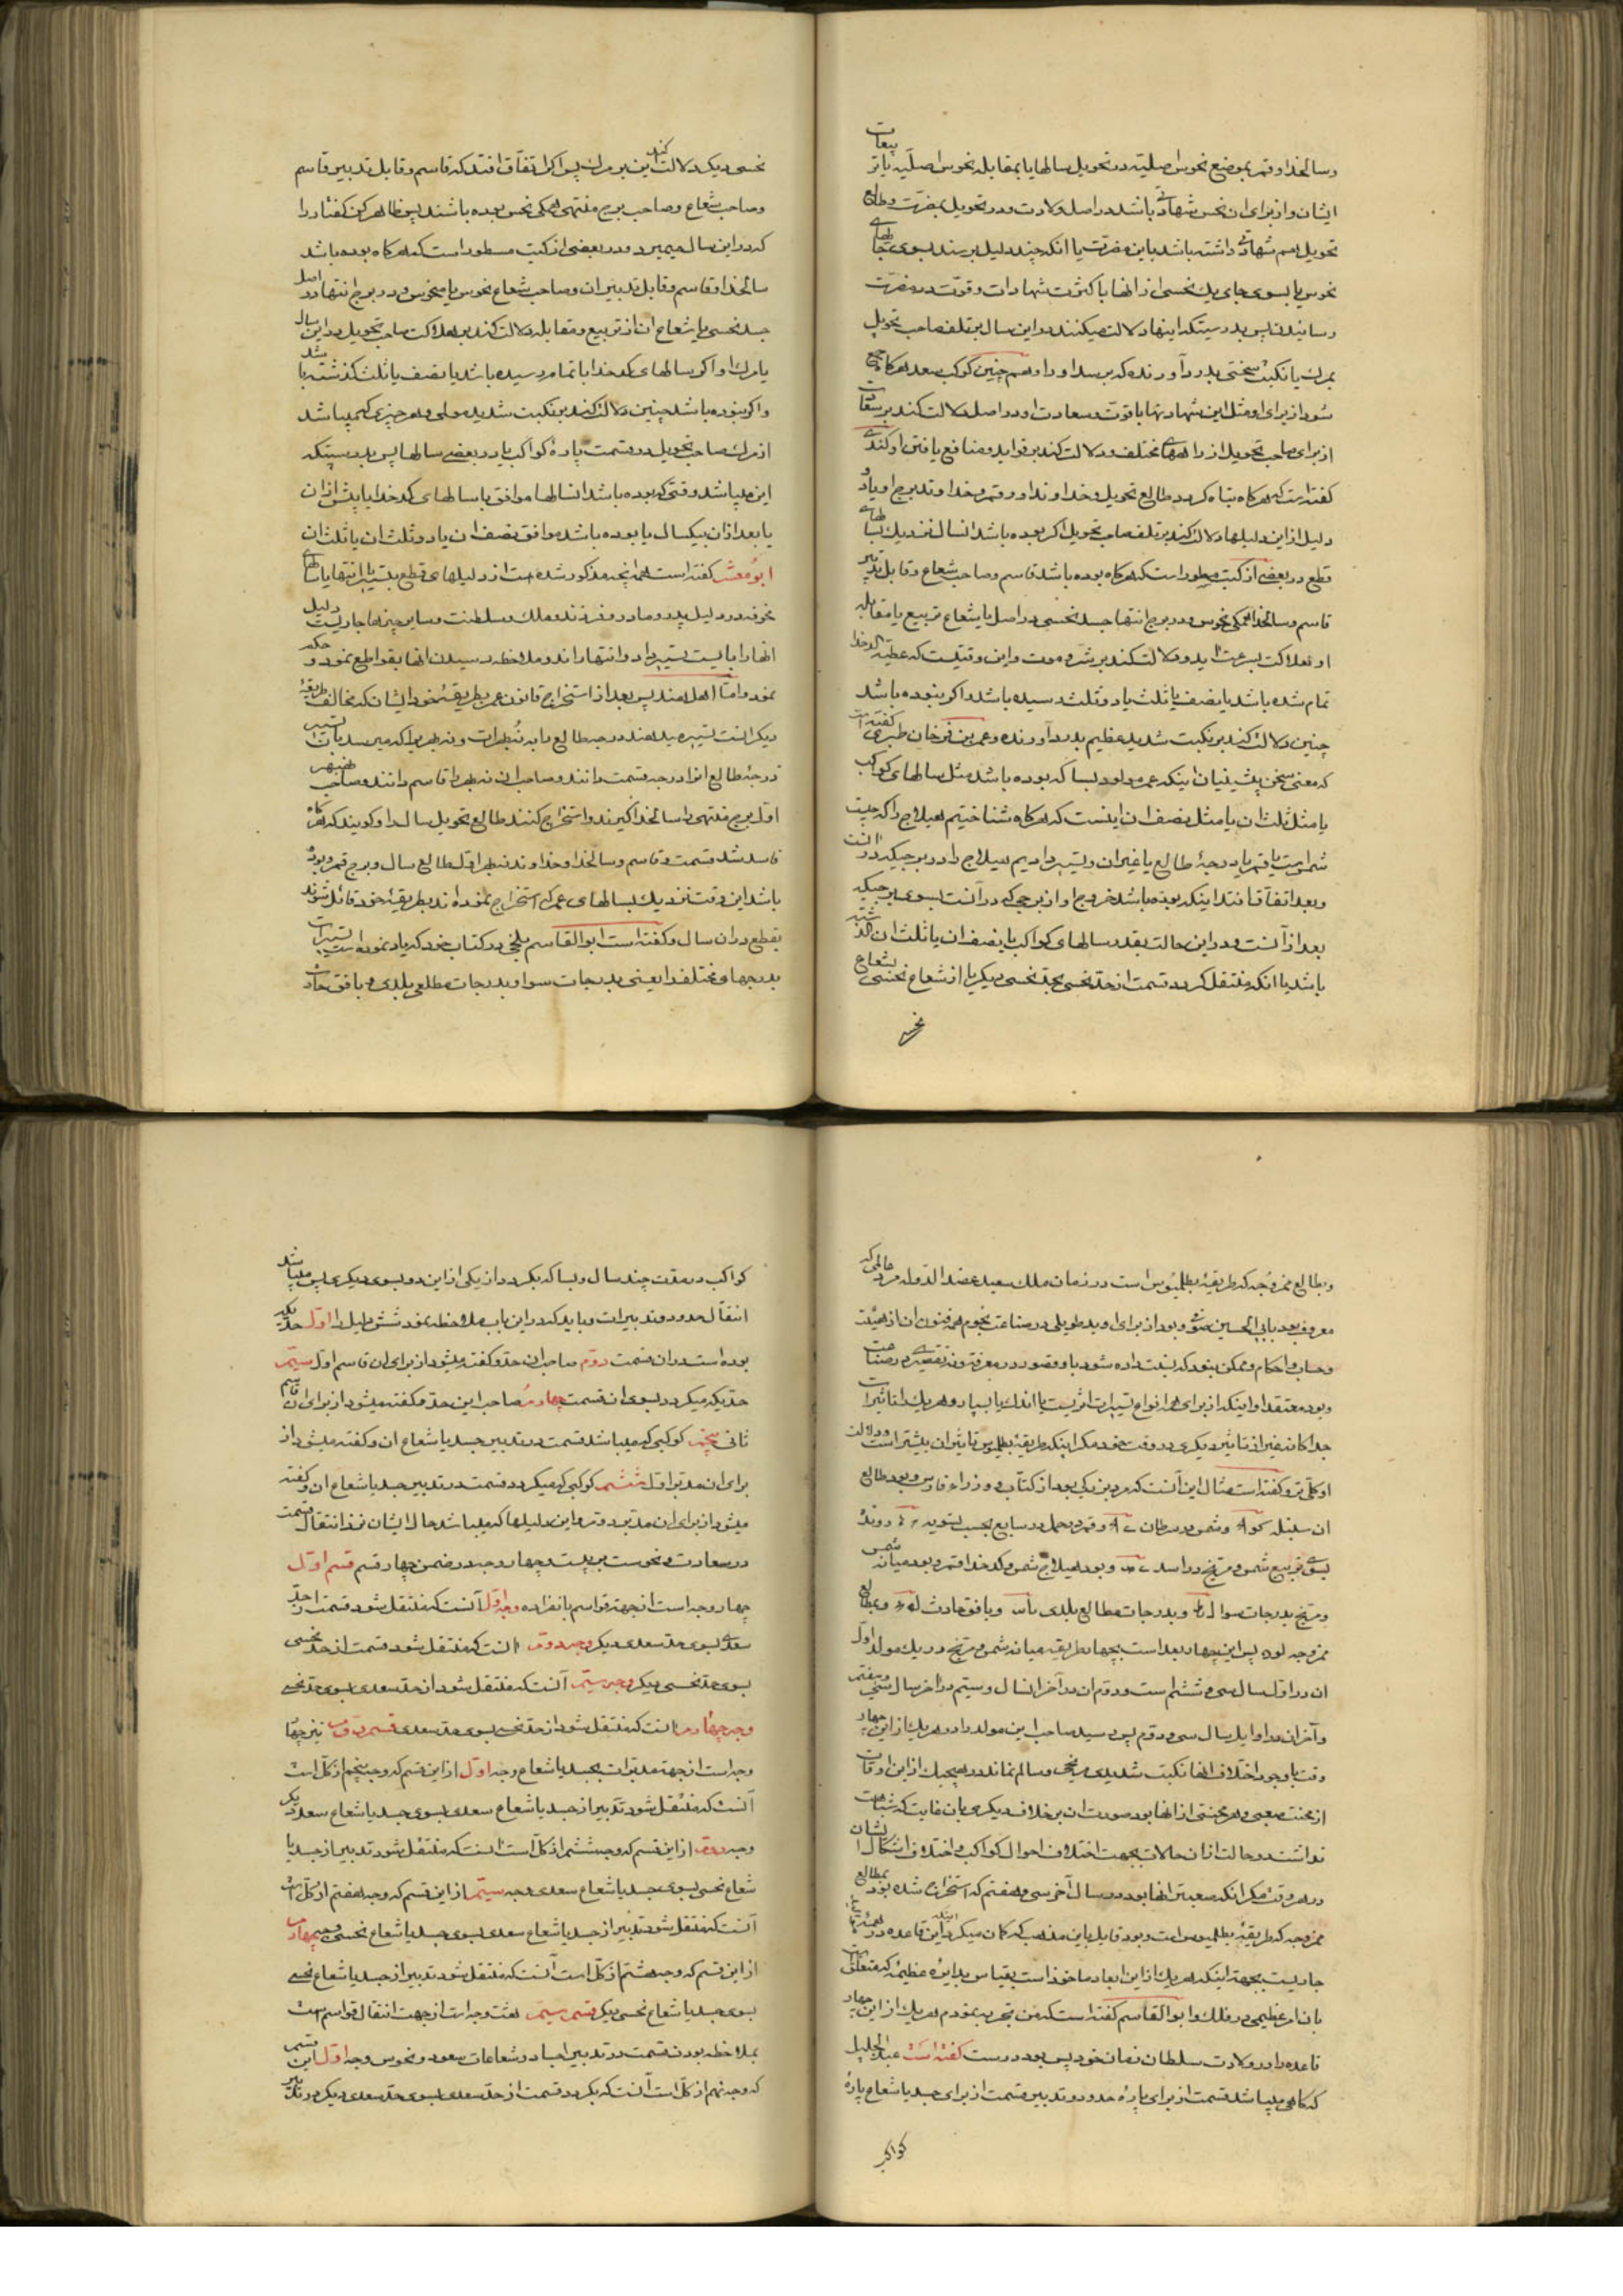 وسالخدا وقمر بموضع نحوس اصلیّه در تحویل سالها یا بمقابله نحوس اصلّیه یا تر
بیعات
ایشان و از برای ان نحس شهادتی باشد در اصل ولادت و در تحویل بمضرت و طالع
تحویل هم شهادتی داشته باشد باین مضرّت یا انکه چند دلیل برسند بسوی جا
نحوس یا بسوی جای یک نحسی از انها با کثرت شهادات و قوّت در مضرّت
رسانیدن پس بدرستیکه اینها دلالت میکنند در این سال بر تلف صاحب تحویل
بمرک یا نکبت سختی بدرد آورنده که برسد او را و همچنین کوکب سعد هرکاه
شود از برای او مثل این شهادتها با قوّت و سعادت او در اصل دلالت کند بر سعادت
از برای صاحب تحویل از راههای مختلف و دلالت کند بر فواید و منافع یافتن او کندی
کفته است که هرکاه تباه کردد طالع تحویل و خداوند او و قمر و خداوند برج او یا دو
دلیل از این دلیلها دلالت کند بر تلف صاحب تحویل اکر بوده باشد انسال نزدیک بسا
قطع در بعضی از کتب مسطور است که هرکاه بوده باشد قاسم و صاحب شعاع و قابل تدبیر
قاسم و سالخدا همکی نحوس و در برج انتها جسد نحسی در اصل یا شعاع تربیع یا مقابله
او هلاکت بسرعت اید و دلالت کند بر شدت موت و این وقتیست که عطیّه کدخدا
تمام شده باشد یا نصف یا ثلث یا دو ثلث رسیده باشد و اکر نبوده باشد
چنین دلالت کند بر نکبت شدید عظیم بدرد آورنده و عمر بن فرخان طبری کفته است
که معنی سخن پیشینیان اینکه عمر مولود بسا که بوده باشد مثل سالهای کوکب
یا مثل ثلث ان یا مثل نصف ان اینست که هرکاه شناختیم هیلاج را که چیست
شمس است یا قمر یا درجهٔ طالع یا غیر ان و تسییر دادیم هیلاج را در برجیکه در آنست
و بعد اتفاق افتد اینکه بوده باشد خروج او از برجی که در آنست بسوی برجیکه
بعد از آنست و در این حالت بقدر سالهای کواکب یا نصف ان یا ثلث ان کذشته
باشد یا انکه منتقل کردد قسمت از حدّ نحسی بحدّ نحسی دیکر یا از شعاع نحسی بشعاع
نحسی
نحسی دیکر دلالت کند این بر مرک پس اکر اتّفاق افتد که قاسم و قابل تدبیر قاسم
و صاحب شعاع و صاحب برج منتهی همکی نحس بوده باشند پس ظاهر کن کفتار را
که در این سال میمیرد و در بعضی از کتب مسطور است که هرکاه بوده باشد
سالخدا و قاسم و قابل تدبیر ان و صاحب شعاع نحوس یا منحوس و در برج انتها در اصل
جسد نحسی یا شعاع ان از تربیع و مقابله دلالت کند بر هلاکت صاحب تحویل در این سال
یا مرک او اکر سالهای کدخدا باتمام رسیده باشد یا نصف یا ثلث کذشته باشد
و اکر نبوده باشد چنین دلالت کند بر نکبت شدید
از مرک صاحب تحویل در قسمت پارهٔ کواکب یا در بعضی سالها پس بدرستیکه
این میباشد وقتی که بوده باشد انسالها موافق با سالهای کدخدا یا پیش از ان
یا بعد از ان بیکسال یا بوده باشد موافق نصف ان یا دو ثلث ان یا ثلث ان
ابومعشر کفته است همه انچه مذکور شده است از دلیلهای قطع بتسییر یا انتها یا سالهای
نحوند در دلیل پدر و مادر و فرزند و ملک و سلطنت و سایر چیزها جاریست دلیل
انها را بایست تسییر داد و انتها راند و ملاحظه رسیدن انها بقواطع نمود و حکم
نمود و امّا اهل هند پس بعد از استخراج قانون عمر بطریقهٔ خود ایشان که مخالف طریقهٔ
دیکرانست تسییر میدهند درجه طالع را به نُهبهرات و نه بهریرا که میرسد بان تسییر
درجهٔ طالع انرا درجه قسمت دانند و صاحب ان نه بهر را قاسم دانند و صاحب نه بهر
اوّل برج منتهی را سالخدا کیرند و استخراج کنند طالع تحویل سال را و کویند که هرکاه
فاسد شد قسمت و قاسم و سالخدا و خداوند نه بهر اوّل طالع سال و برج قمر و بوده
باشد این وقت نزدیک بسالهای عمر که استخراج نموده‌اند بطریقهٔ خود قائل شوند
بقطع در ان سال و کفته است ابوالقاسم بلخی در کتاب خود که یاد نموده است تسییرات
بدرجهای مختلف را یعنی بدرجات سوا و بدرجات مطالعی بلدی و بافق حادث
و بطالع ممزوجه که طریقهٔ بطلمیوس است در زمان ملک سعید عضد الدّوله مردی که عالمی
معروف بود بابی الحسین صوفی و بود از برای او ید طولی در صناعت نجوم همه فنون ان از هیئت
و حساب و احکام و ممکن نبود که نسبت داده شود باو قصور در معرفت و نه تقصیری در صناعت
و بود معتقد او اینکه از برای هر انواع تسییرات اثریست یا اندک یا بسیار و هر یک را تاثیرات
جداکانه غیر از تاثیر دیکری در وقت خود مکر اینکه طریقهٔ بطلمیوس تاثیر ان بیشتر است و دلالت
او کلّی تر و کفته است مثال این آنست که مردی بود از کتّاب و وزراء فارس و بود طالع
ان سنبله و شمس در سرطان و قمر در حمل در سابع بحسب تسویه
بسوی تربیع شمس و مرّیخ در اسد و بود هیلاج شمس و کدخدا قمر و بود میان شمس
و مرّیخ بدرجات سوا و بدرجات مطالع بلدی و بافق حادث و بطالع
ممزوجه لو پس این چهار بعد است بچهار طریقه میانه شمس و مرّیخ در یک مولد اوّل
ان در اوّل سال سی و ششم است و دوّم ان در آخر انسال و سیّم در آخر سال سی و هفتم
و آخر ان در اوایل سال سی و دوّم پس رسید صاحب این مولد را در هر یک از این چهار
وقت با وجود اختلاف انها نکبت شدیدی و سالم نماند در هیچیک از این اوقات
از محنت صعبی و هر محنتی از انها بود صورت ان بر خلاف دیکری بان غایت که شباهت
نداشت در حالت از ان حالات بجهت اختلاف احوال کواکب و اختلاف اشکال ایشان
در هر وقت مکر انکه صعبترین انها بود در سال آخر سی و هفتم که استخراج شده بود بمطالع
ممزوجه که طریقهٔ بطلمیوس است و بود قایل باین مذهب که کمان میکرد اینکه این قاعده در همهٔ
جاریست بجهت اینکه هر یک از این ابعاد ماخوذ است بقیاس بدایرهٔ عظیمه که متعلّق
بان امر عظیمی در فلک و ابوالقاسم کفته است که من تجربه نمودم هر یک از این چهار
قاعده را در ولادت سلطان زمان خود پس بود درست کفته است عبدالجلیل
که کاهی میباشد قسمت از برای پارهٔ حدود و تدبیر قسمت از برای جسد یا شعاع پارهٔ
کواکب
کواکب در مدّت چند سال و بسا که بکردد از یکی از این دو بسوی دیکری پس میباشد
انتقال حدود و تدبیرات و باید که در این باب ملاحظه نمود شش دلیل را اوّل حدّیکه
بوده است در ان قسمت دوّم صاحب ان حدّ و کفته میشود از برای ان قاسم اوّل سیّم
حدّیکه میکردد بسوی ان قسمت چهارم صاحب این حدّ و کفته میشود از برای ان قاسم
ثانی پنجم کوکبی که میباشد قسمت در تدبیر جسد یا شعاع ان و کفته میشود از
برای ان مدبّر اوّل ششم کوکبی که میکردد قسمت در تدبیر جسد یا شعاع ان و کفته
میشود از برای ان مدبّر دوّم و این دلیلها که میباشد حال ایشان نزد انتقال قسمت
در سعادت و نحوست بر بیست و چهار وجه در ضمن چهار قسم قسم اوّل
چهار وجه است از جهة قواسم بانفراده وجه اوّل آنست که منتقل شود قسمت از حدّ
سعدی بسوی حدّ سعدی دیکر وجه دوّم انست که منتقل شود قسمت از حدّ نحسی
بسوی حدّ نحسی دیکر وجه سیّم آنست که منتقل شود از حدّ سعدی بسوی حدّ نحسی
وجه چهارم انست که منتقل شود از حدّ نحسی بسوی حدّ سعدی قسم دوّم نیز چهار
وجه است از جهة مدبّرات بجسد یا شعاع وجه اوّل از این قسم که وجه پنجم از کلّ است
آنست که منتقل شود تدبیر از جسد یا شعاع سعدی بسوی جسد یا شعاع سعد دیکر
وجه دوّم از این قسم که وجه ششم از کلّ است انست که منتقل شود تدبیر از جسد یا
شعاع نحسی بسوی جسد یا شعاع سعدی وجه سیّم از این قسم که وجه هفتم از کلّ است
آنست که منتقل شود تدبیر از جسد یا شعاع سعدی بسوی جسد یا شعاع نحسی وجه چهارم
از این قسم که وجه هشتم از کلّ است آنست که منتقل شود تدبیر از جسد یا شعاع نحسی
بسوی جسد یا شعاع نحسی دیکر قسم سیّم هشت وجه است از جهت انتقال قواسم است
بملاحظه بودن قسمت در تدبیر اجساد و شعاعات سعود و نحوس وجه اوّل این قسمی
که وجه نهم از کلّ است آنست که بکردد قسمت از حدّ سعدی بسوی حدّ سعدی دیکر در تدبیر